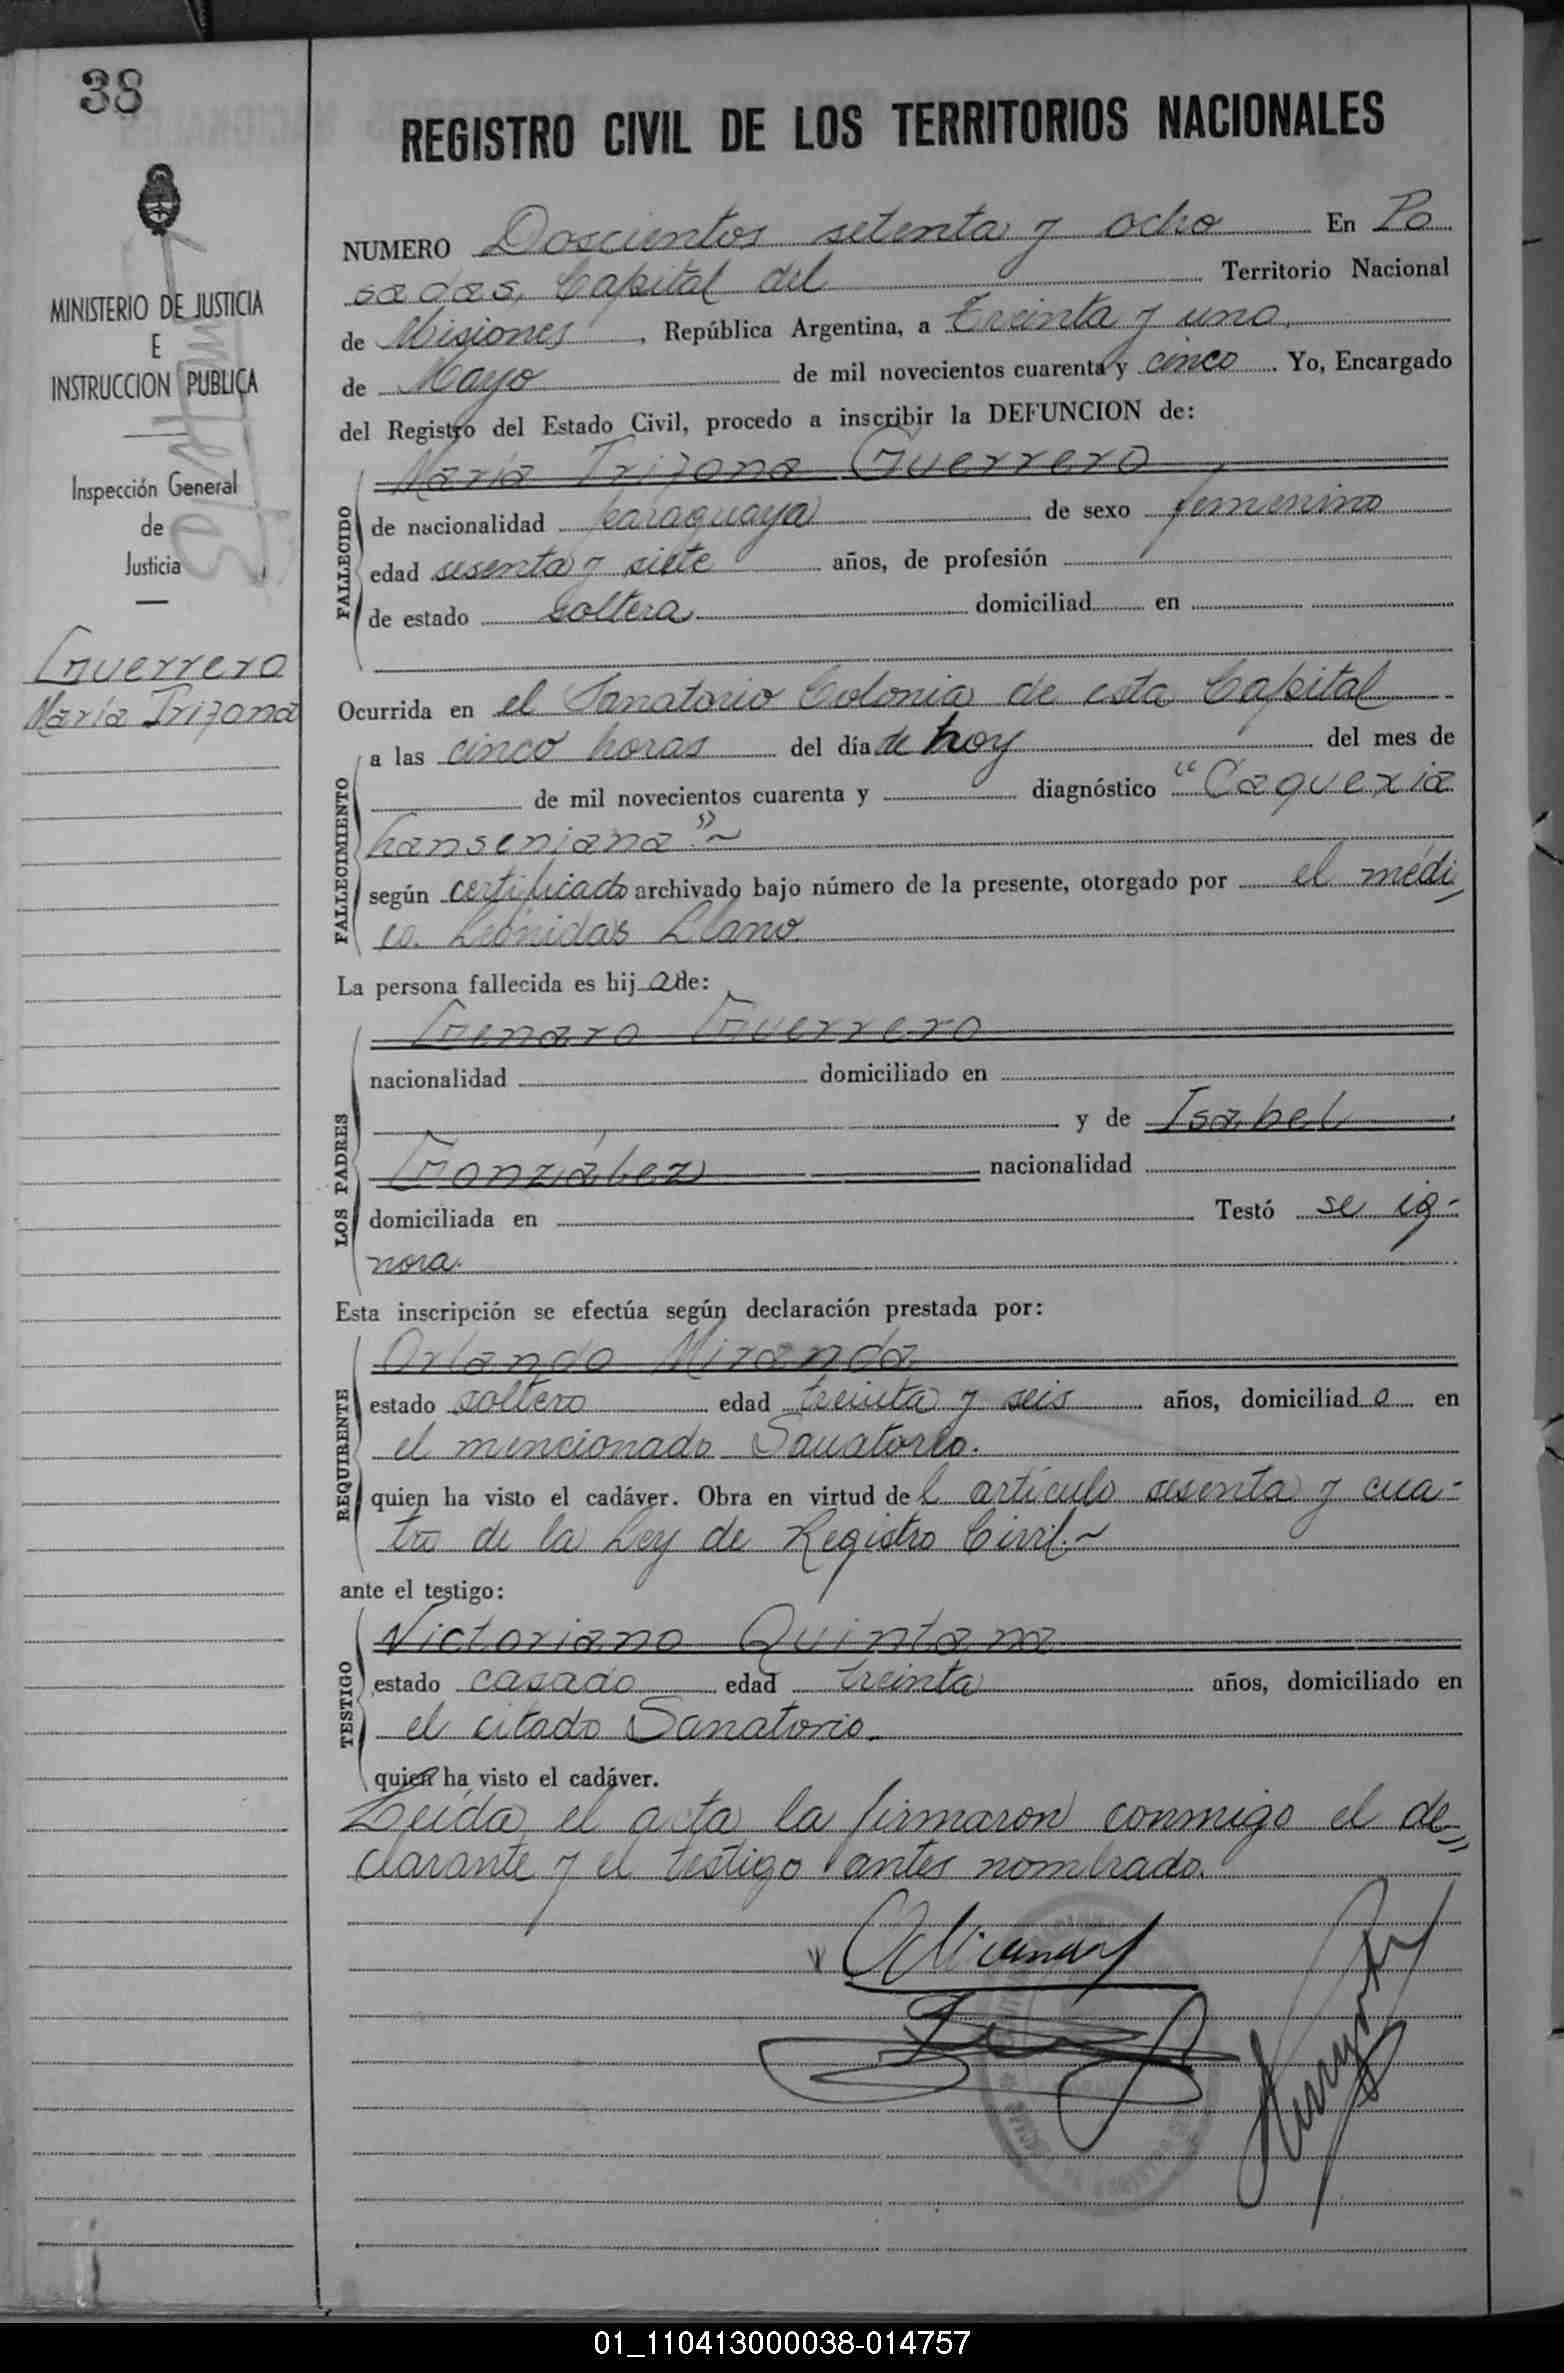 38
REGISTRO CIVIL DE LOS TERRITORIOS NACIONALES
MINISTERIO DE JUSTICIA
E
INSTRUCCION PUBLICA
Inspección General
de
Justicia
Guerrero
María Trifona
NUMERO Doscientos setenta y ocho En Po
sadas, Capital del Territorio Nacional
de Misiones, República Argentina, a Treinta y uno,
de Mayo de mil novecientos cuarenta y cinco. Yo, Encargado
del Registro del Estado Civil, procedo a inscribir la DEFUNCION de:
FALLECIDO
María Trifona Guerrero,
de nacionalidad paraguaya de sexo femenino
edad sesenta y siete años, de profesión
de estado soltera domiciliad en
Ocurrida en el Sanatorio Colonia de esta Capital
FALLECIMIENTO
a las cinco horas del día de hoy del mes de
de mil novecientos cuarenta y diagnóstico "Caquexia
hanseniana".~
según certificado archivado bajo número de la presente, otorgado por el médi
co. Leónidas Llano.
La persona fallecida es hija de:
LOS PADRES
Genaro Guerrero
nacionalidad domiciliado en
y de Isabel
González nacionalidad
domiciliada en Testó se ig-
nora.
Esta inscripción se efectúa según declaración prestada por:
REQUIRENTE
Orlando Miranda
estado soltero edad treinta y seis años, domiciliado en
el mencionado Sanatorio.
quien ha visto el cadáver. Obra en virtud del artículo sesenta y cua-
tro de la Ley de Registro Civil.~
ante el testigo:
TESTIGO
Victoriano Quintana
estado casado edad treinta años, domiciliado en
el citado Sanatorio.
quien ha visto el cadáver.
Leída el acta la firmaron conmigo el de=
clarante y el testigo antes nombrado.
OMiranda
01_110413000038-014757